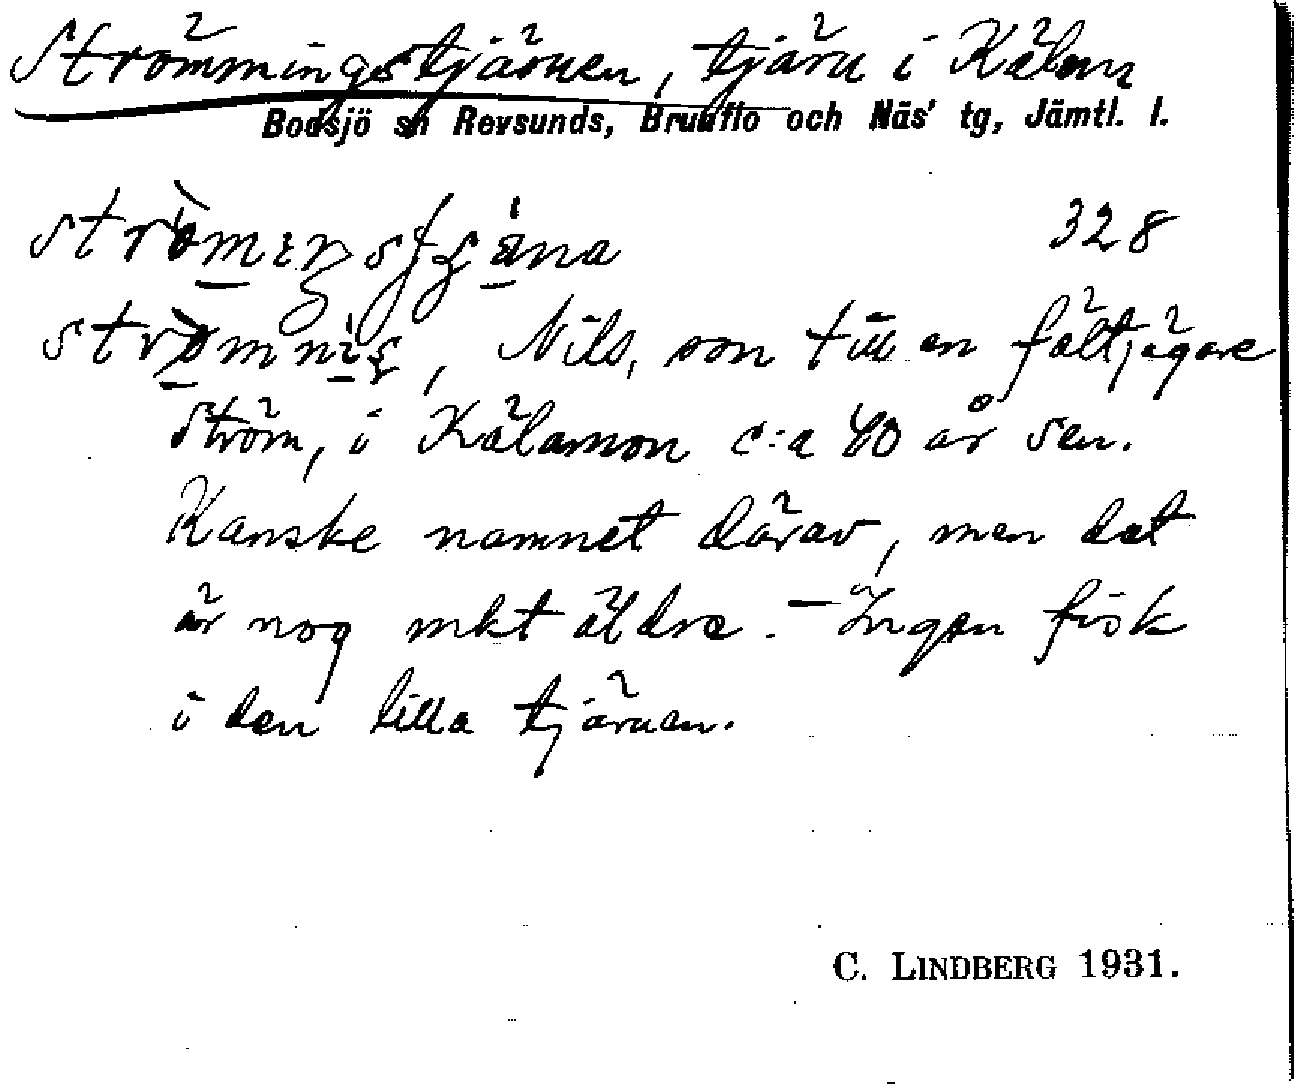 Strömmingstjärnen, tjärn i Kälen
Bodsjö sn Revsunds, Brunflo och Näs' tg, Jämtl. l.
328
Nils, son till en fältjägare
Ström, i Kälamon c:a 40 år sen.
Kanske namnet därav, men det
är nog mkt äldre. – Ingen fisk
i den lilla tjärnen.
C. LINDBERG 1931.